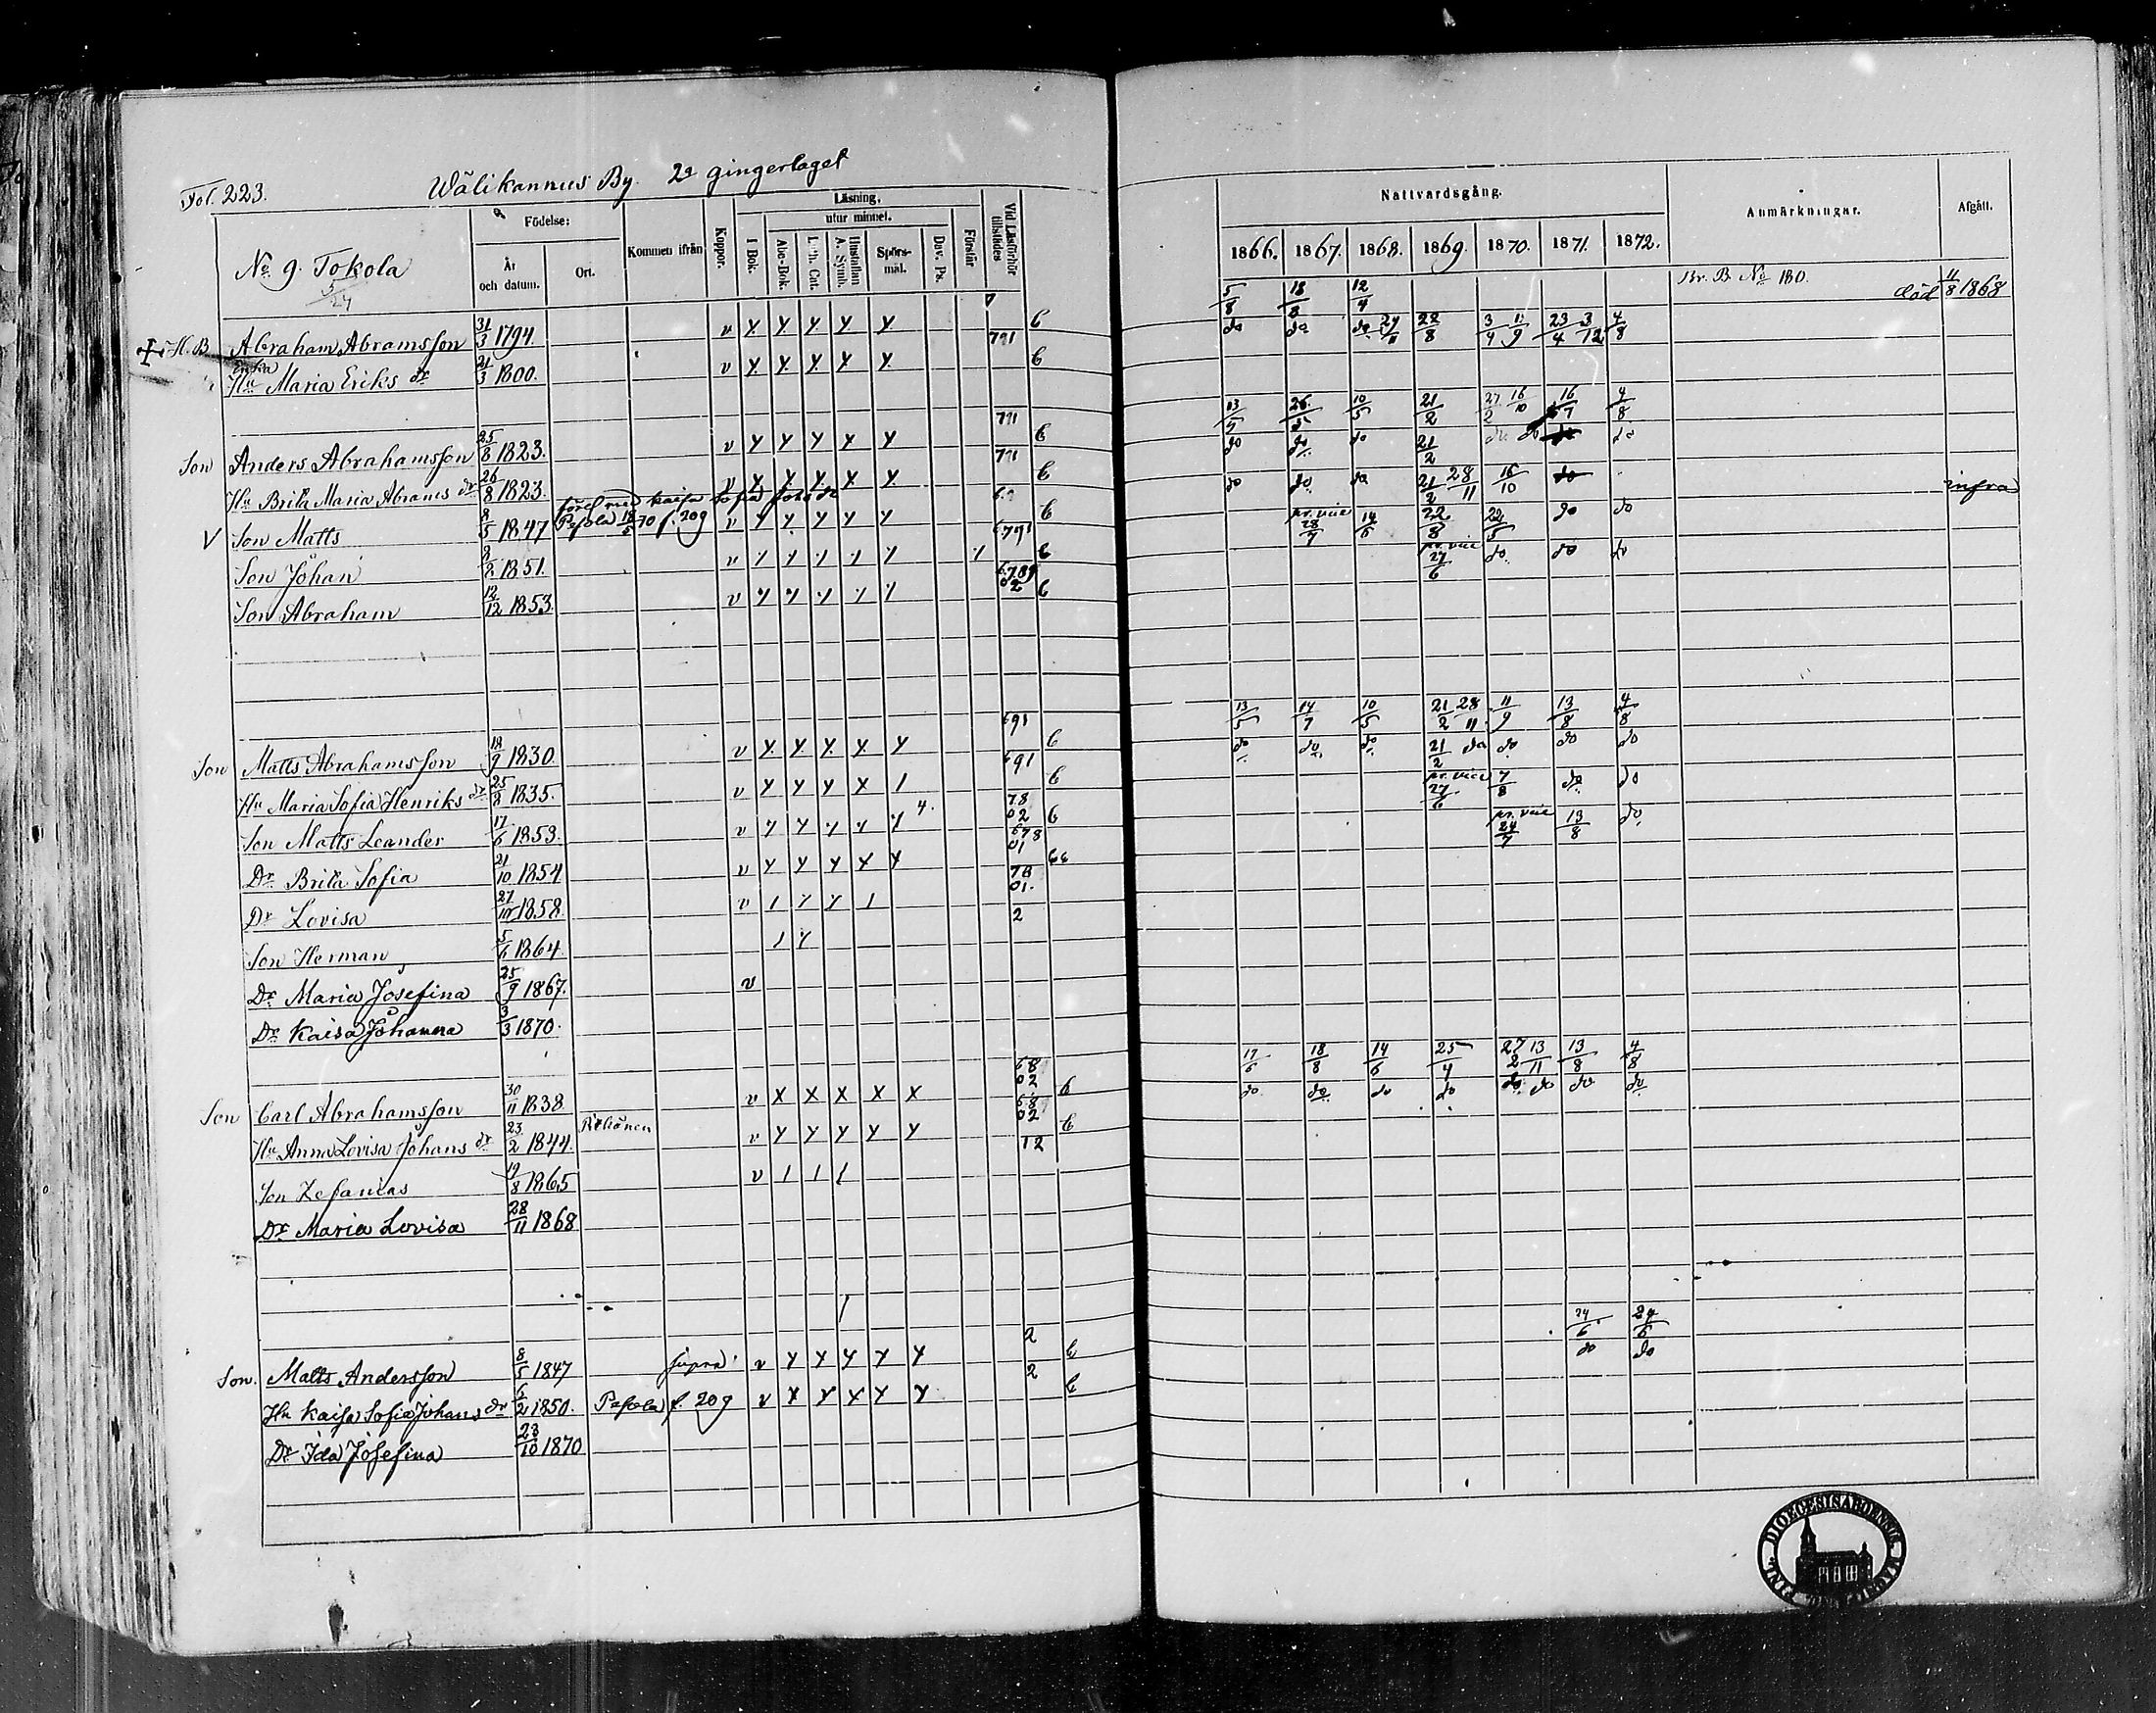 Fol. 223. Wälikannus By. 2a gingerlaget
Födelse: Kommen ifrån Koppor. Läsning, Vid Läsförhör tillstädes
utur minnet.
I Bok. Abc-Bok. Luth. Cat. Hustaflan A. Symb. Spörs-mål. Dav. Ps. Förstår
No 9. Tokola År och datum. Ort.
5/24
Nattvardsgång. Anmärkningar. Afgått.
1866. 1867. 1868. 1869. 1870. 1871. 1872.
H. B. Abraham Abramsson 31/3 1794. v 5/8 18/8 12/4 Br. B No 180. död 11/8 1868
Enkn
Hu Maria Eriks dr 21/3 1800. v 791 do do do 28/8 4/8
Son Anders Abrahamsson 25/8 1823. v 791 13/5 26/5 10/5 21/2 27/2 16/10 16/7 4/8
Hu Brita Maria Abrams dr 26/8 1823. v 791 do do do 21/2 do do do do
förel. med Kaisa Sofia Joh. dr
V Son Matts 8/5 1847 Pesola 18/5 70 f. 209 v do do do 21/2 28/11 16/10 do infra
Son Johan 2/2 1851. v 6791 pr. vice 28/7 14/6 22/8 22/5 do do
Son Abraham 12/12 1853. v 6789 02 pr. vice 27/6 do do do
Son Matts Abrahamsson 18/9 1830 v 691 13/5 14/7 10/5 21/2 28/11 11/9 13/8 4/8
Hu Maria Sofia Henriks dr 25/8 1835. v 691 do do do 21/2 do do do do
Son Matts Leander 17/6 1853. v 78 02 pr. vice 27/6 7/8 do do
Dr Brita Sofia 21/10 1854 v 678 01 pr. vice 24/7 13/8 do
Dr Lovisa 27/10 1858. v 78 01.
Son Herman 5/6 1864. 2
Dr Maria Josefina 25/9 1867. v
Dr Kaisa Johanna 3/3 1870.
Son Carl Abrahamsson 30/11 1838 v 68 02 17/6 18/8 14/6 25/4 27/2 13/11 13/8 4/8
Hu Anna Lovisa Johans dr 23/2 1844. v 68 02 do do do do do do do do
Son Zefanias 19/8 1865 v 12
Dr Maria Lovisa 28/11 1868
Son. Matts Andersson 8/5 1847 supra v 2 24/6 24/6
Hu Kaisa Sofia Johans dr 6/2 1850. Pesola f. 209 v 2 do do
Dr Ida Josefina 23/10 1870
DIOECESIS ABOENSIS